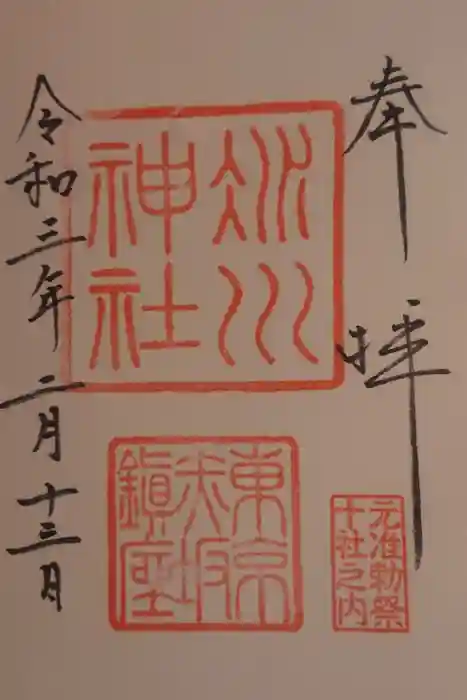 奉拝
冰川
神社
東京
赤坂
鎭座
元准勅祭
十社之内
令和三年二月十三日